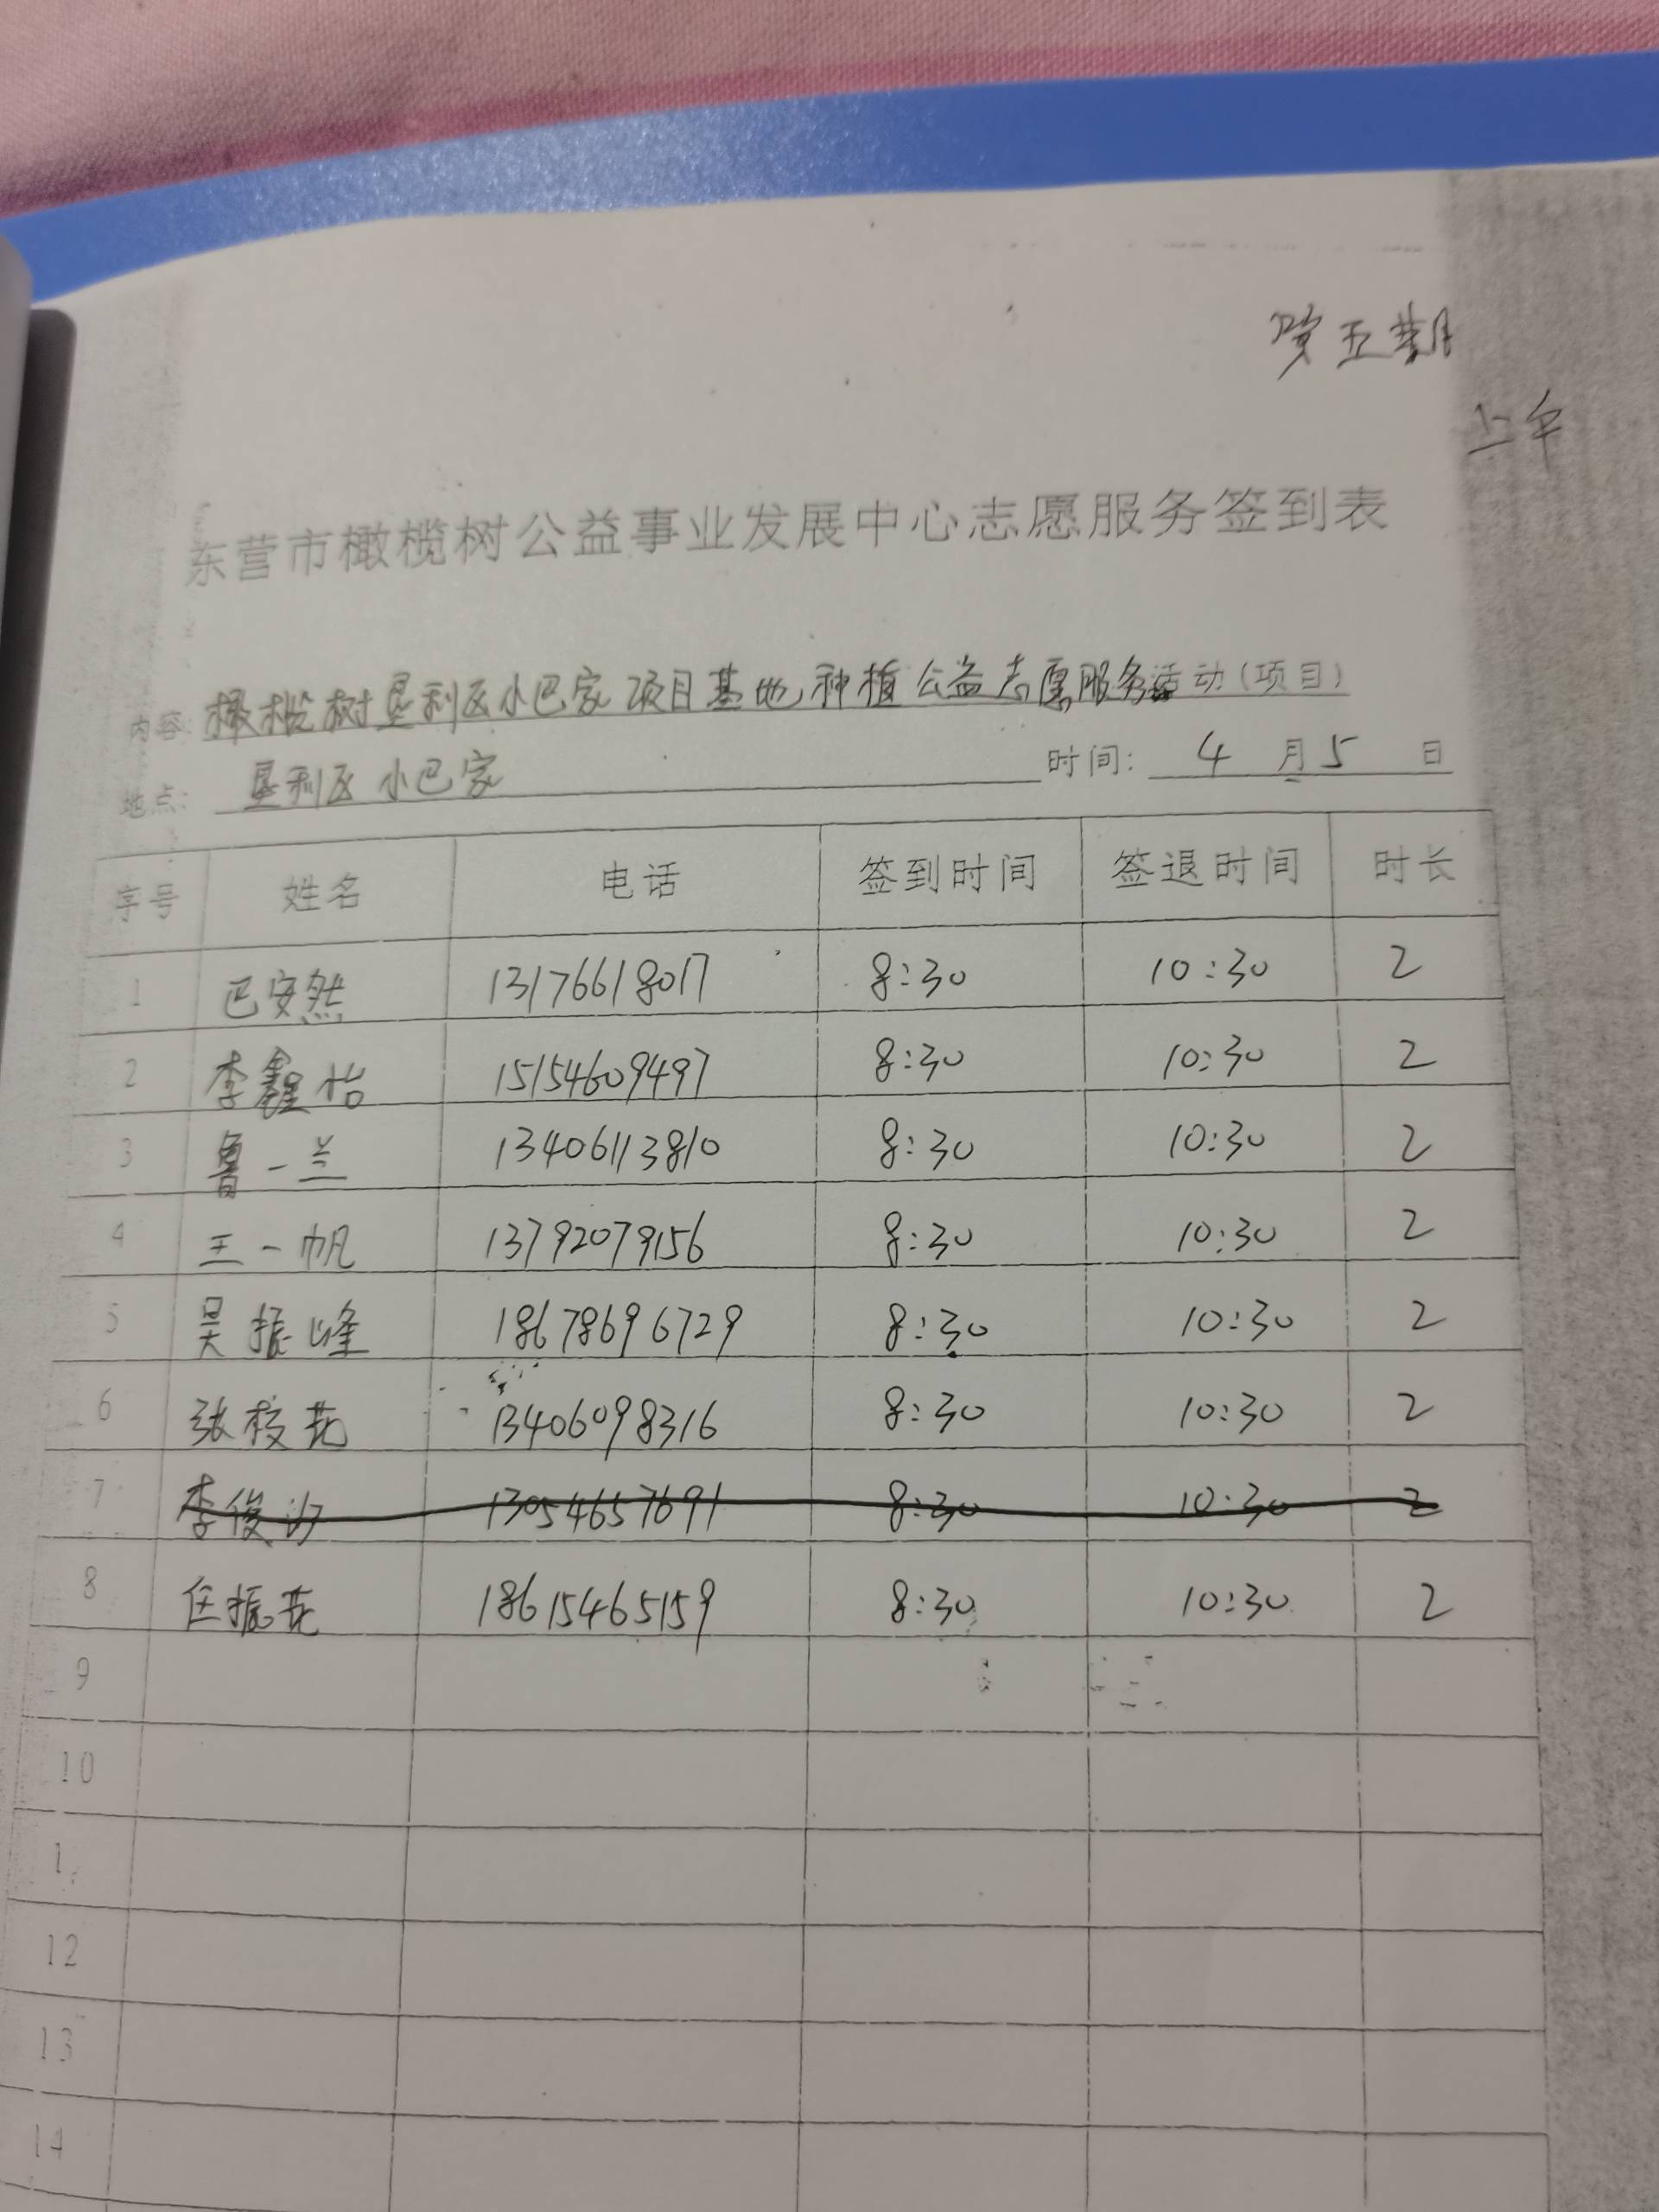 第五期
上午
东营市橄榄树公益事业发展中心志愿服务签到表
内容: 橄榄树垦利区小巴家项目基地种植公益志愿服务活动(项目)
地点: 垦利区小巴家 时间: 4 月 5 日
序号 姓名 电话 签到时间 签退时间 时长
1 巴安然 13176618017 8:30 10:30 2
2 李鑫怡 15154609497 8:30 10:30 2
3 鲁一兰 13406113810 8:30 10:30 2
4 王一帆 13792079156 8:30 10:30 2
5 吴振峰 18678696729 8:30 10:30 2
6 张枝花 13406098316 8:30 10:30 2
7 李俊 13054657691 8:30 10:30 2
8 任振花 18615465159 8:30 10:30 2
9
10
1
12
13
14